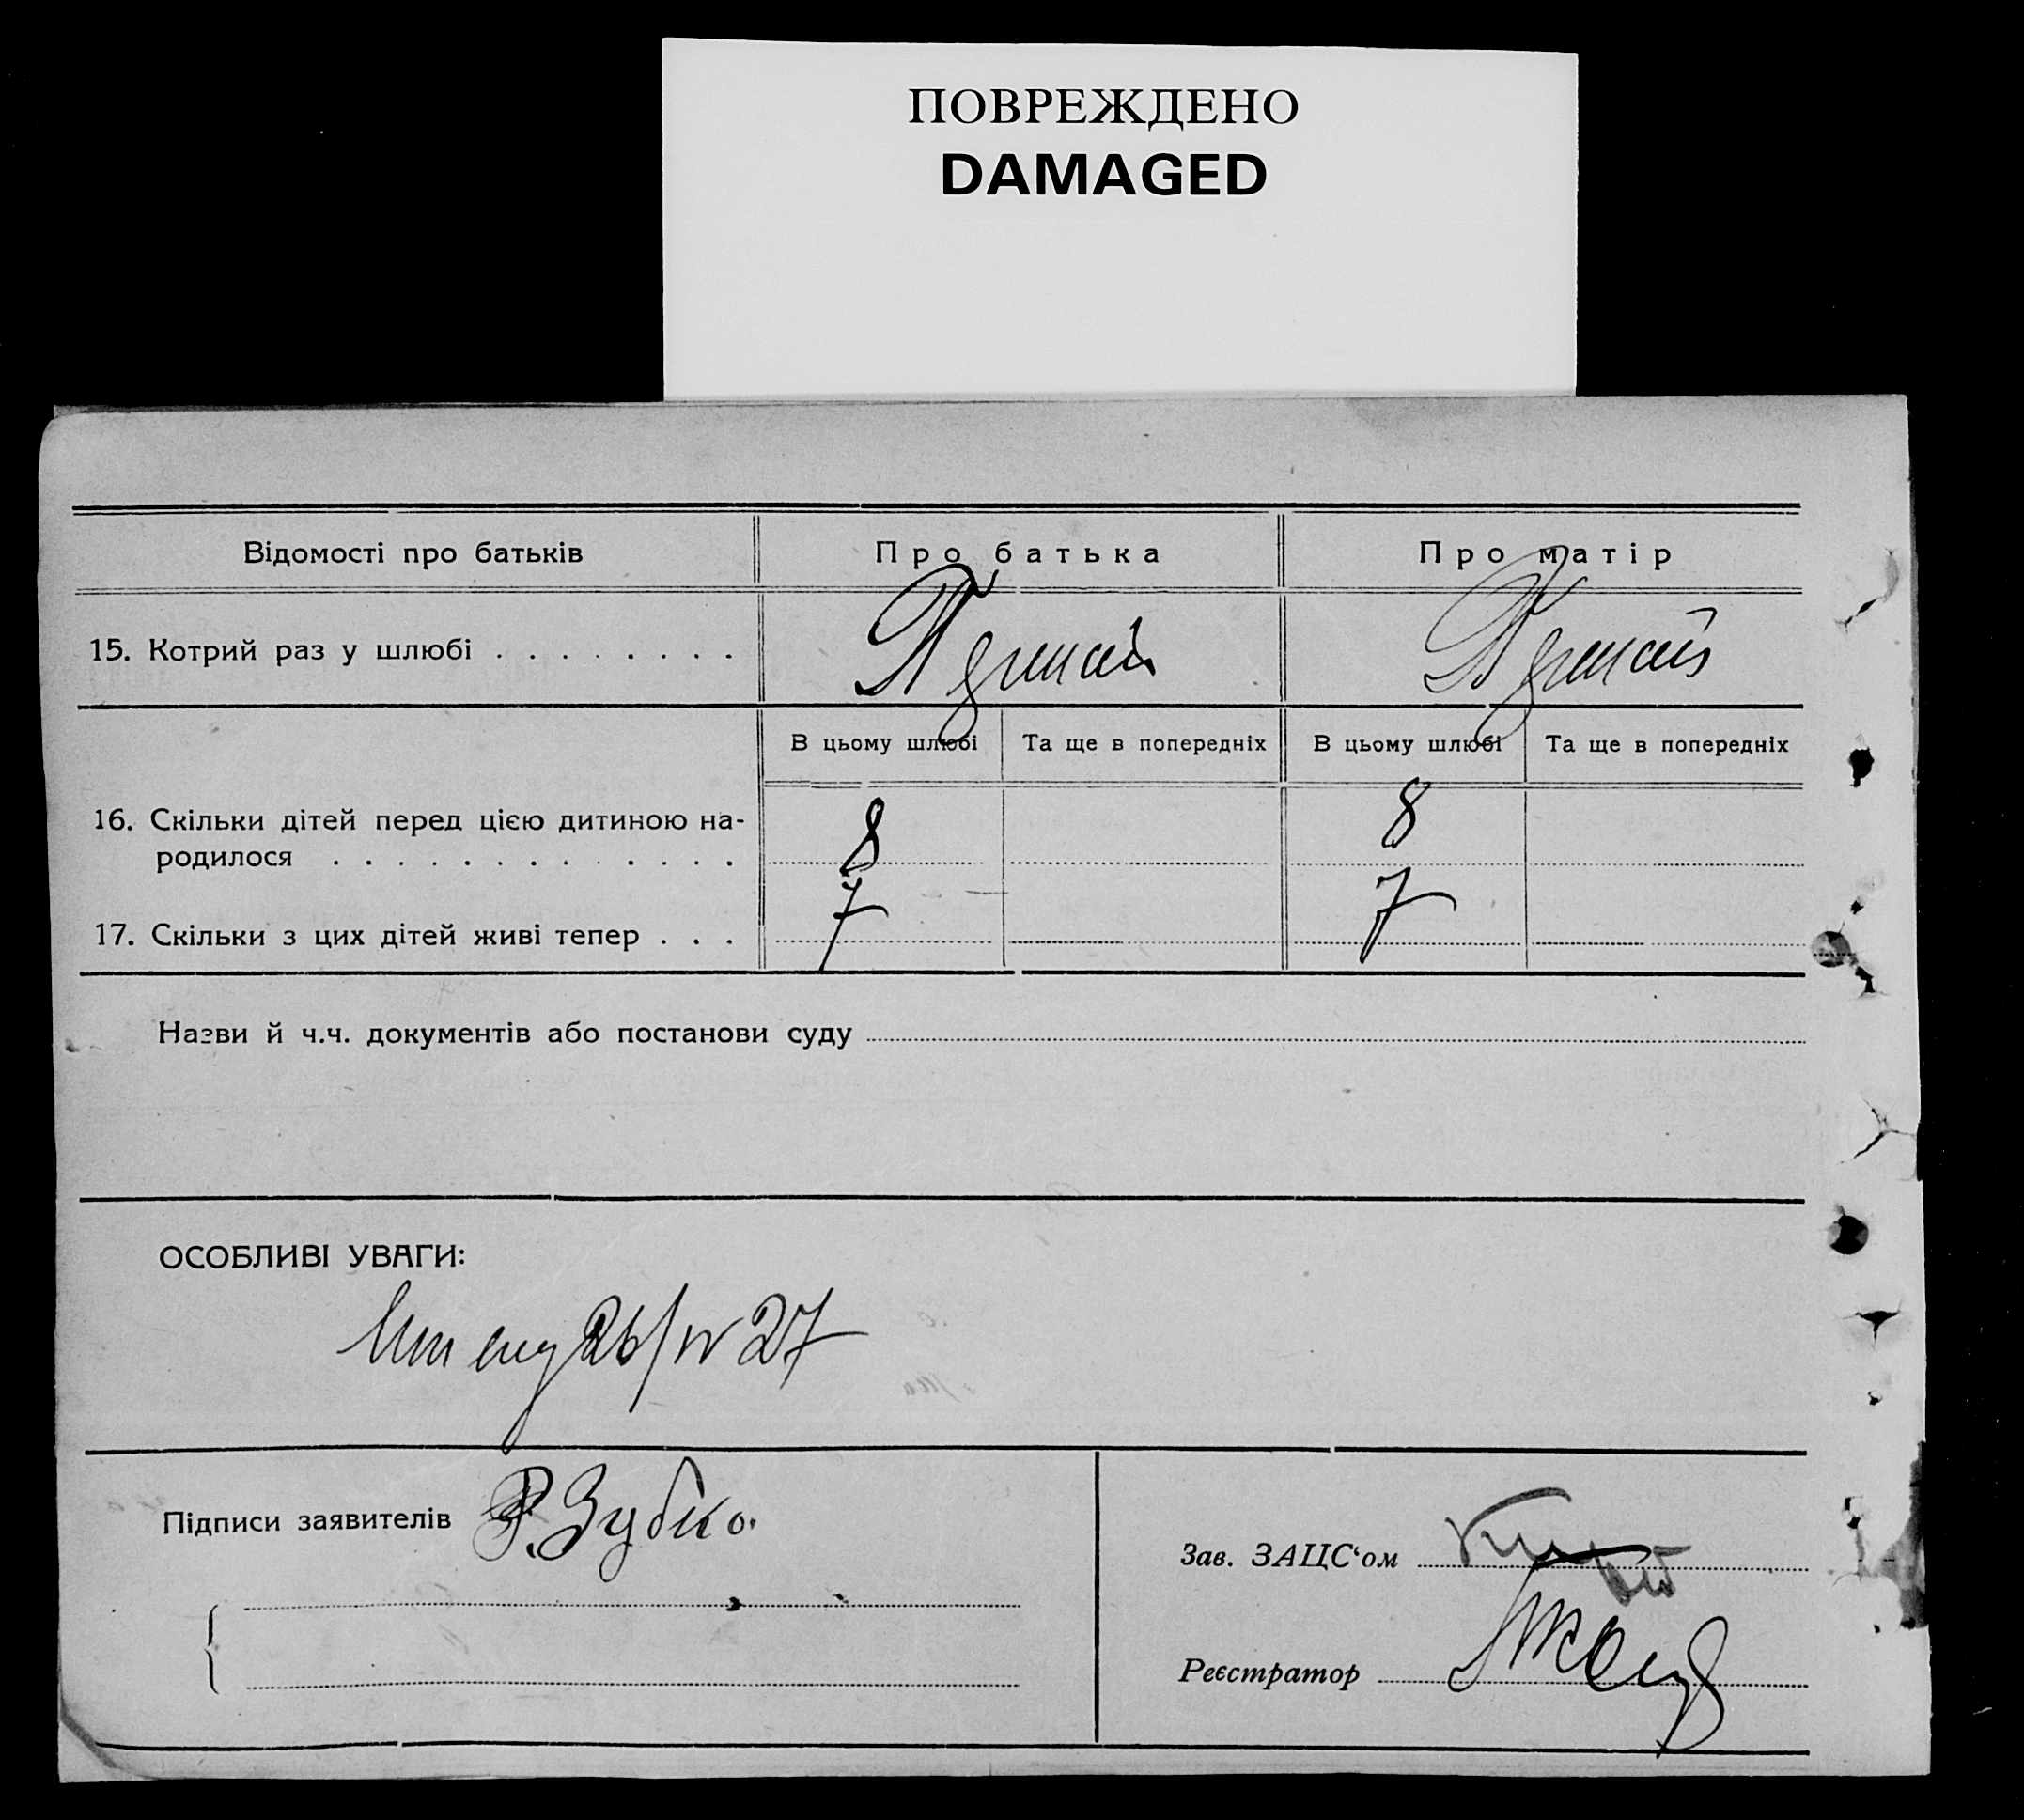 ПОВРЕЖДЕНО
DAMAGED
Відомості про батьків
Про батька
Про матір
15. Котрий раз у шлюбі . . . . . . . .
Перший
Перший
В цьому шлюбі
Та ще в попередніх
В цьому шлюбі
Та ще в попередніх
16. Скільки дітей перед цією дитиною на-
родилося . . . . . . . . . . . . .
8
8
17. Скільки з цих дітей живі тепер . . .
7
7
Назви й ч.ч. документів або постанови суду
ОСОБЛИВІ УВАГИ:
26/IV 27
Підписи заявителів Р. Зубко.
Зав. ЗАЦС‘ом
Реєстратор